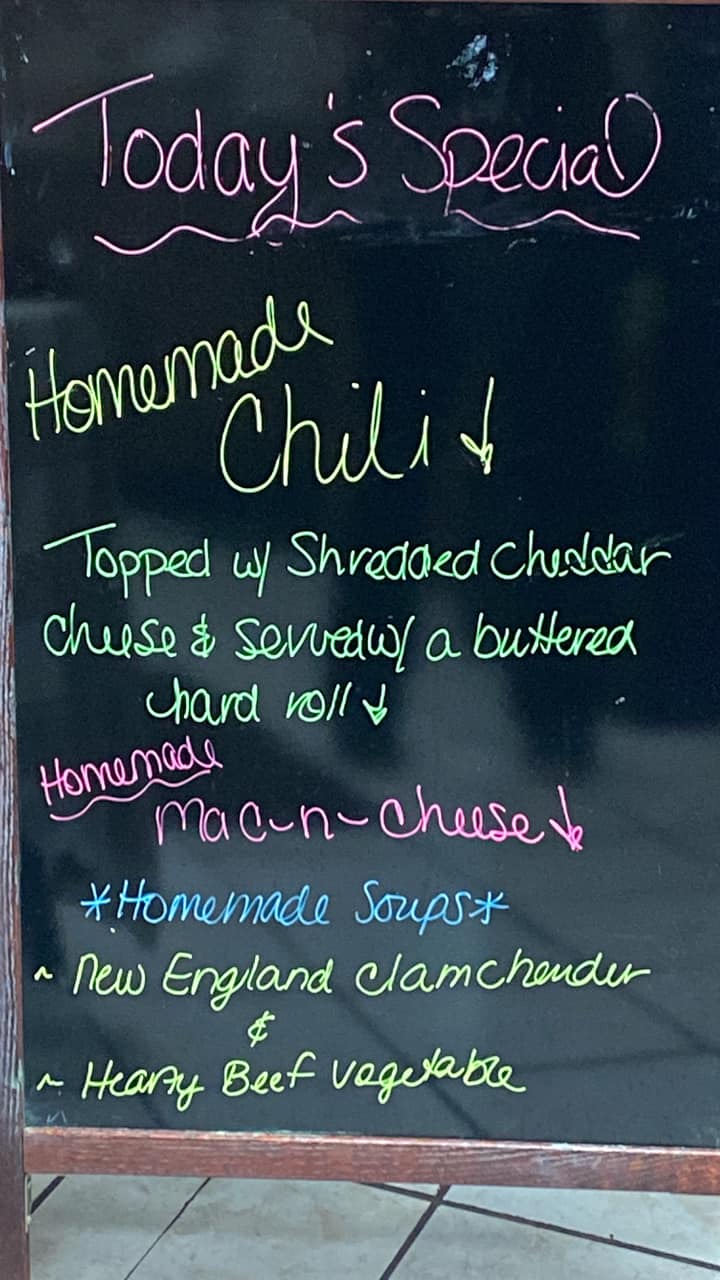 Today's Special
Homemade
Chili ↓
Topped w/ Shredded Cheddar
Cheese & Served w/ a buttered
hard roll ↓
Homemade
mac-n-cheese ↓
*Homemade Soups*
~ New England Clam Chowder
&
~ Hearty Beef Vegetable